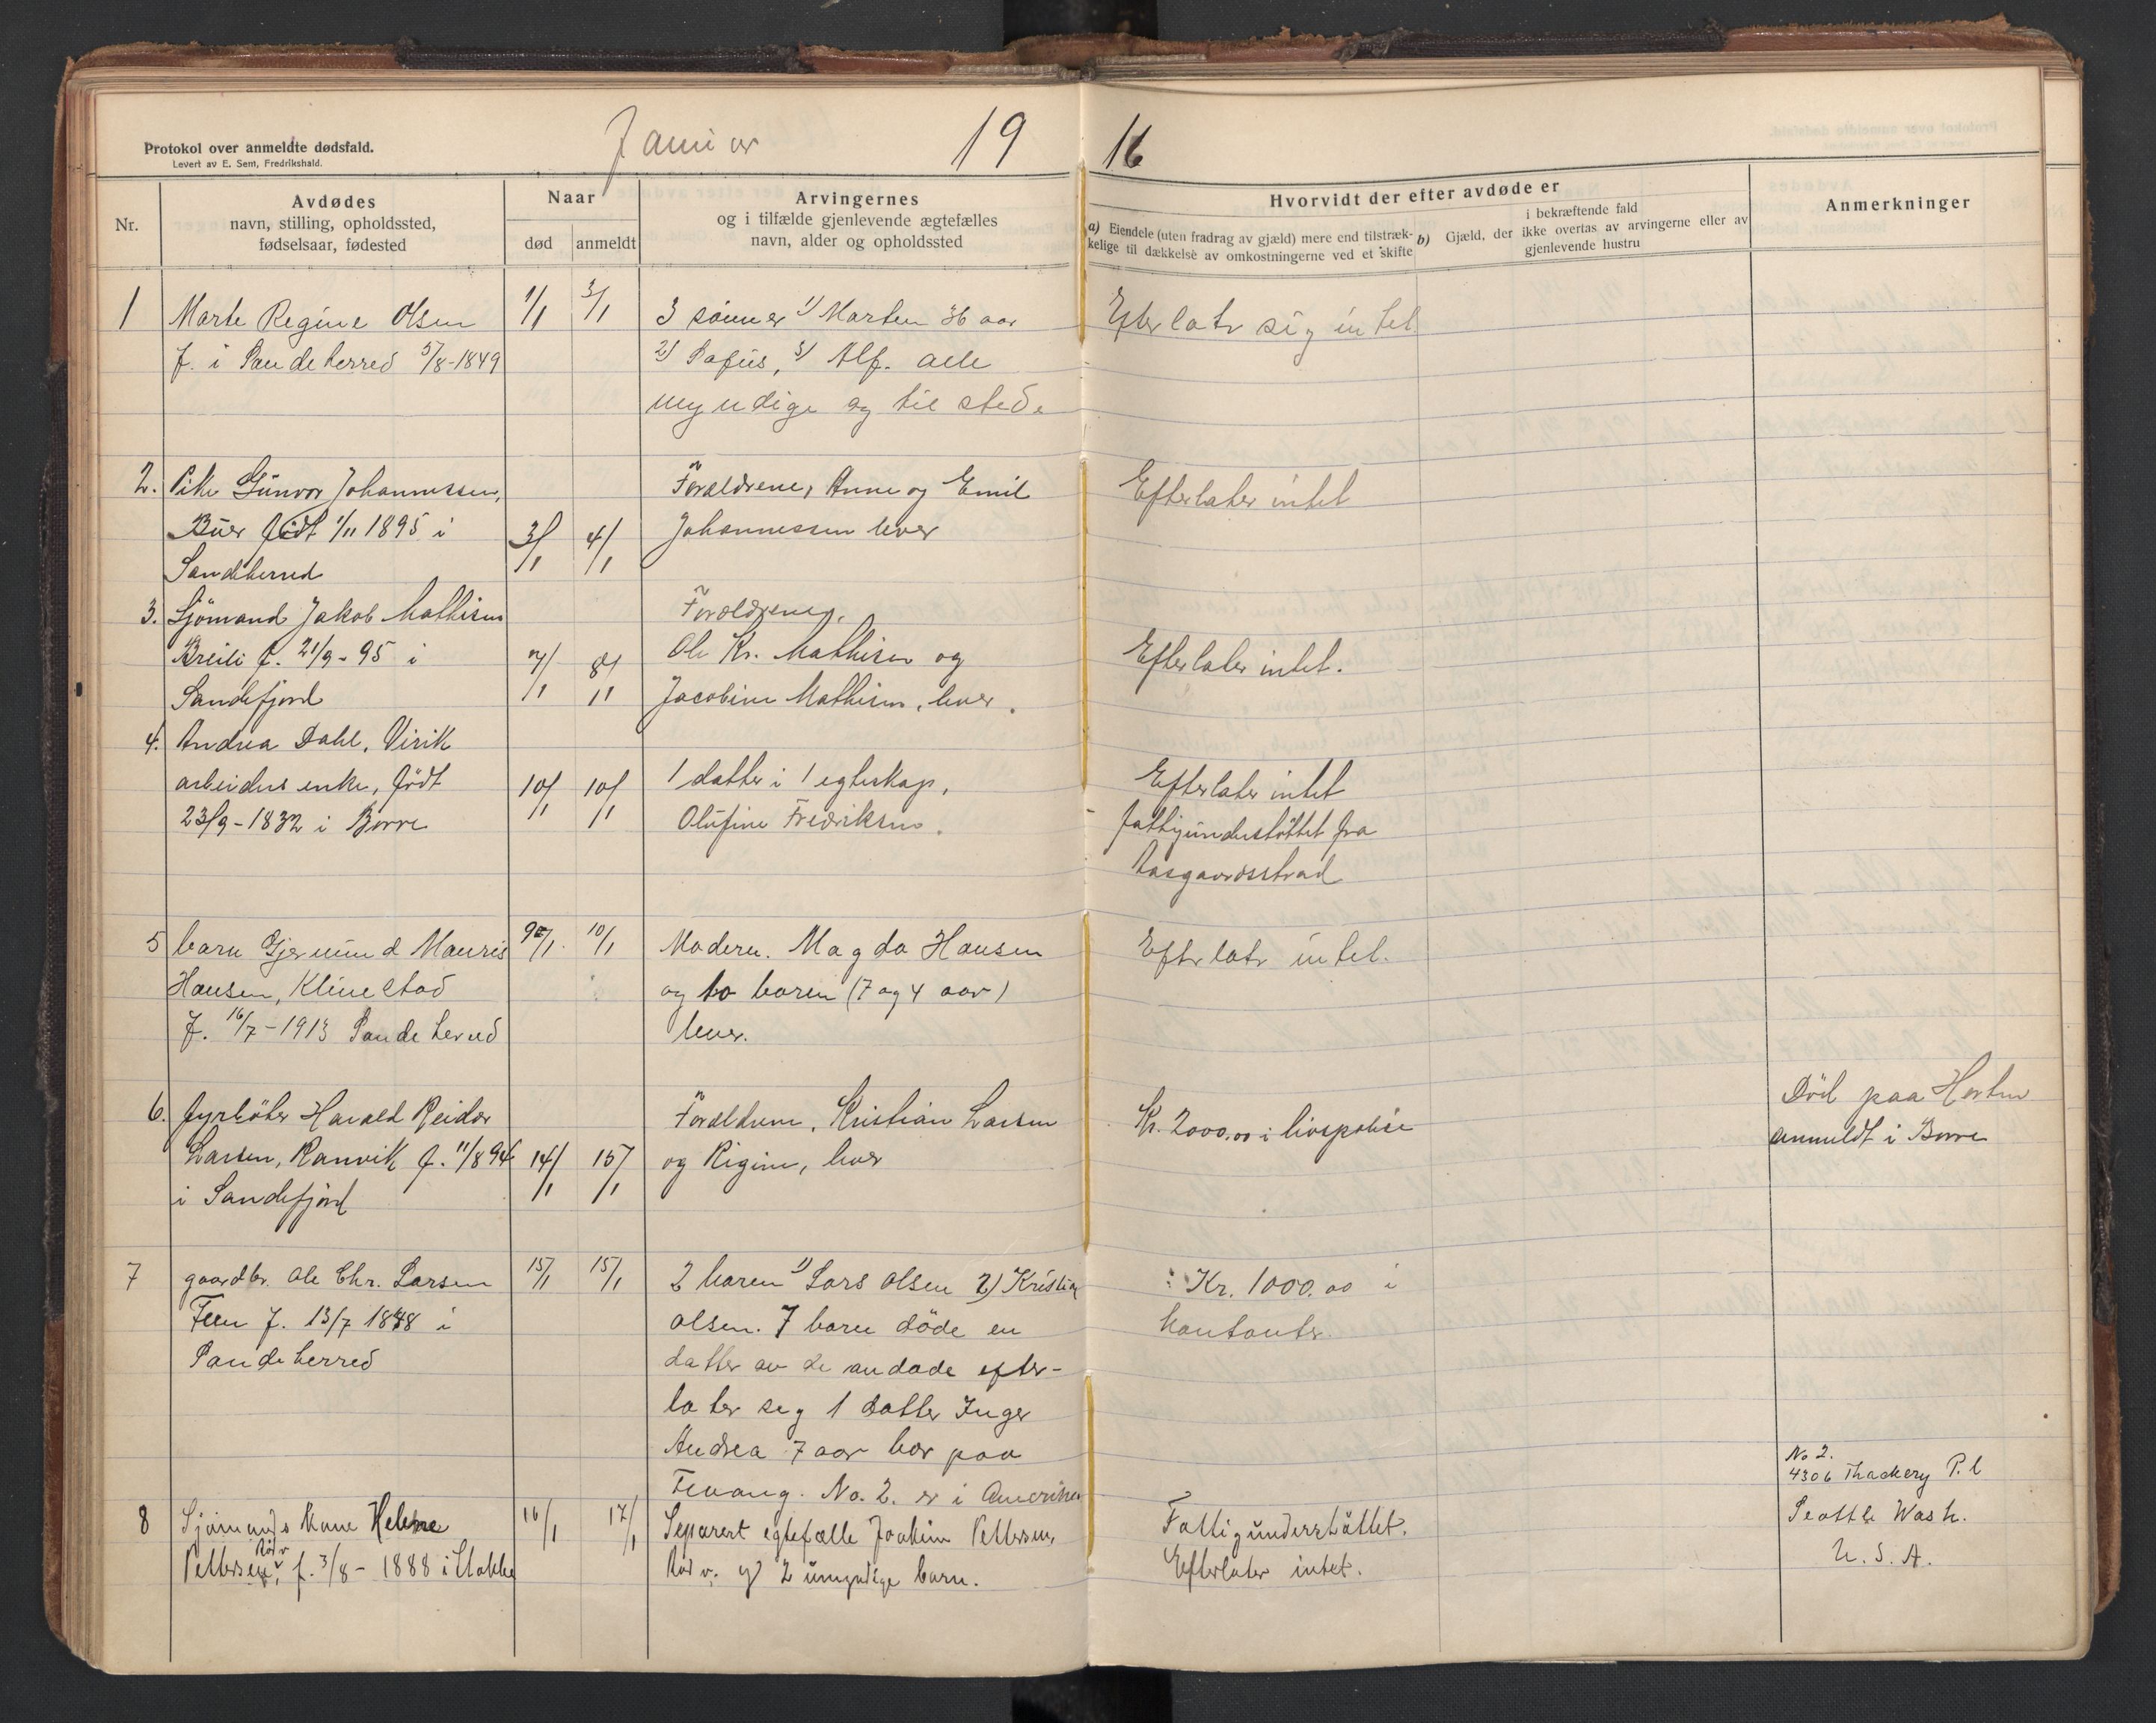 Protokol over anmeldte dødsfald.
Levert av E. Sem, Fredrikshald.
Januar 19 16
Nr.
Avdødes
navn, stilling, opholdssted,
fødselsaar, fødested
Naar
død anmeldt
Arvingernes
og i tilfælde gjenlevende ægtefælles
navn, alder og opholdssted
Hvorvidt der efter avdøde er
a) Eiendele (uten fradrag av gjæld) mere end tilstræk-
kelige til dækkelse av omkostningerne ved et skifte
b) Gjæld, der
i bekræftende fald
ikke overtas av arvingerne eller av
gjenlevende hustru
Anmerkninger
1 Marte Regine Olsen 1/1 3/1 3 sønner 1) Marten 36 aar Efterlatr sig intet
f. i Sandeherred 5/8-1849 2) Pafus, 3) Alf. alle
myndige og til stede
2. Pike Gunvor Johannessen, Forældrene, Anne og Emil Efterlater intet
Buer født 1/11 1895 i 3/1 4/1 Johannessen lever
Sandeherred
3. Sjømand Jakob Mathisen Forældrene,
Breili f. 21/9-95 i 7/1 8/1 Ole Kr. Mathisen og Efterlater intet.
Sandefjord Jacobine Mathisen, lever.
4. Andrea Dahl, Virik
arbeiders enke, født 10/1 10/1 1 datter i 1 egteskap, Efterlater intet
23/9-1832 i Borre Olufine Fredriksen. fattigunderstöttet fra
Aasgaardsstrand
5 barn Gjermund Mauris 9/1 10/1 Moderen. Magda Hansen Efterlatr intet.
Hansen, Klinestad og to barn (7 og 4 aar)
f. 16/7-1913 Sandeherred lever.
6. fyrböter Harald Reidar Forældrene, Kristian Larsen Kr. 2000,00 i livspolise Död paa Horten
Larsen, Ranvik f. 11/8 94 14/1 15/1 og Regine, lever anmeldt i Borre
i Sandefjord
7 gaardbr. Ole Chr. Larsen 15/1 15/1 2 baren 1) Lars Olsen 2) Kristian Kr. 1000.00 i
Feen f. 13/7 1848 i Olsen. 7 barn döde en kontanter.
Sandeherred datter av de andøde efter-
later seg 1 datter Inger
Andrea 7 aar bor paa
Fevang. No. 2. er i Amerika
No 2.
4306 Thackery P.l
Seattle Wash.
U. S. A.
8 Sjømands kone Helene 16/1 17/1 Separert egtefælle Joakim Pettersen Fattigunderstöttet.
Pettersen, Röd v. f. 3/8-1888 i Stokke Röd v. og 2 umyndige barn. Efterlater intet.